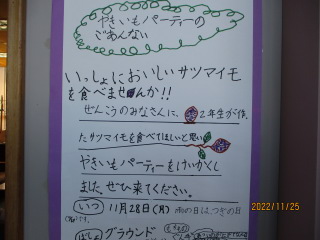 やきいもパーティーの
ごあんない
いっしょにおいしいサツマイモ
を食べませんか!!
ぜんこうのみなさんに、2年生が作っ
たサツマイモを食べてほしいと思い
やきいもパーティーをけいかくし
ました。ぜひ来てください。
いつ 11月28日(月) 雨の日は、つぎの日
です。
ばしょ グラウンド
2022/11/25